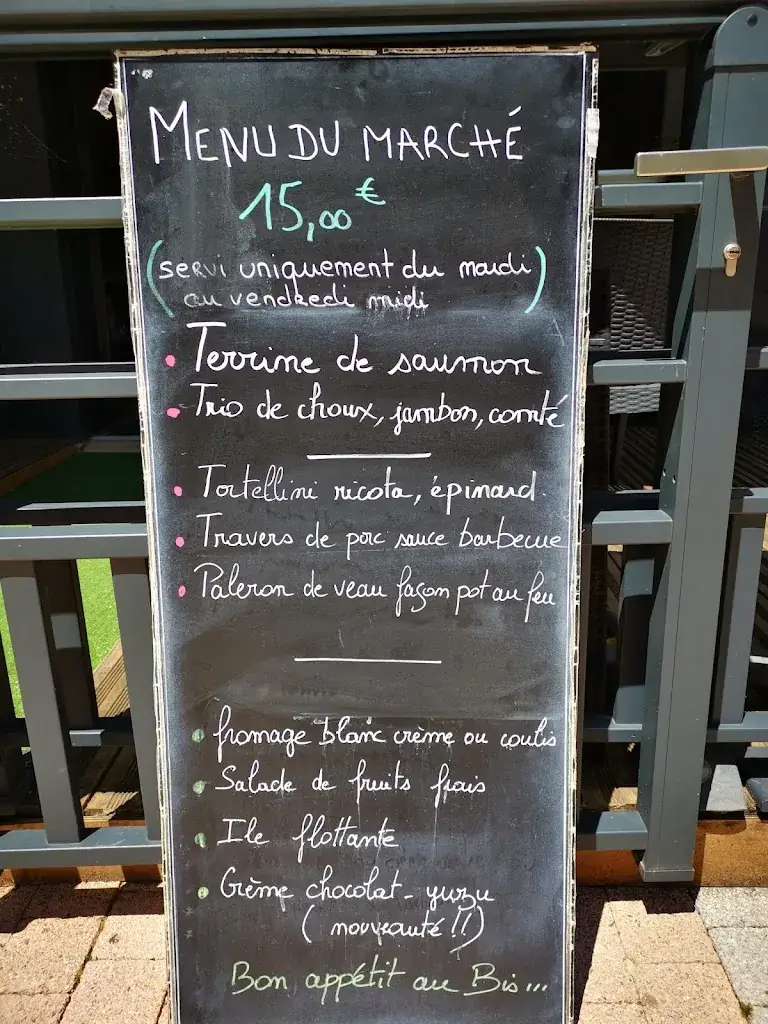 MENU DU MARCHÉ
15,00€
(servi uniquement du mardi
au vendredi midi)
• Terrine de saumon
• Trio de choux, jambon, comté
• Tortellini ricota, épinard.
• Travers de porc sauce barbecue
• Paleron de veau façon pot au feu
• fromage blanc crème ou coulis
• Salade de fruits frais
• Ile flottante
• Crème chocolat - yuzu
( nouveauté !!)
Bon appétit au Bis...